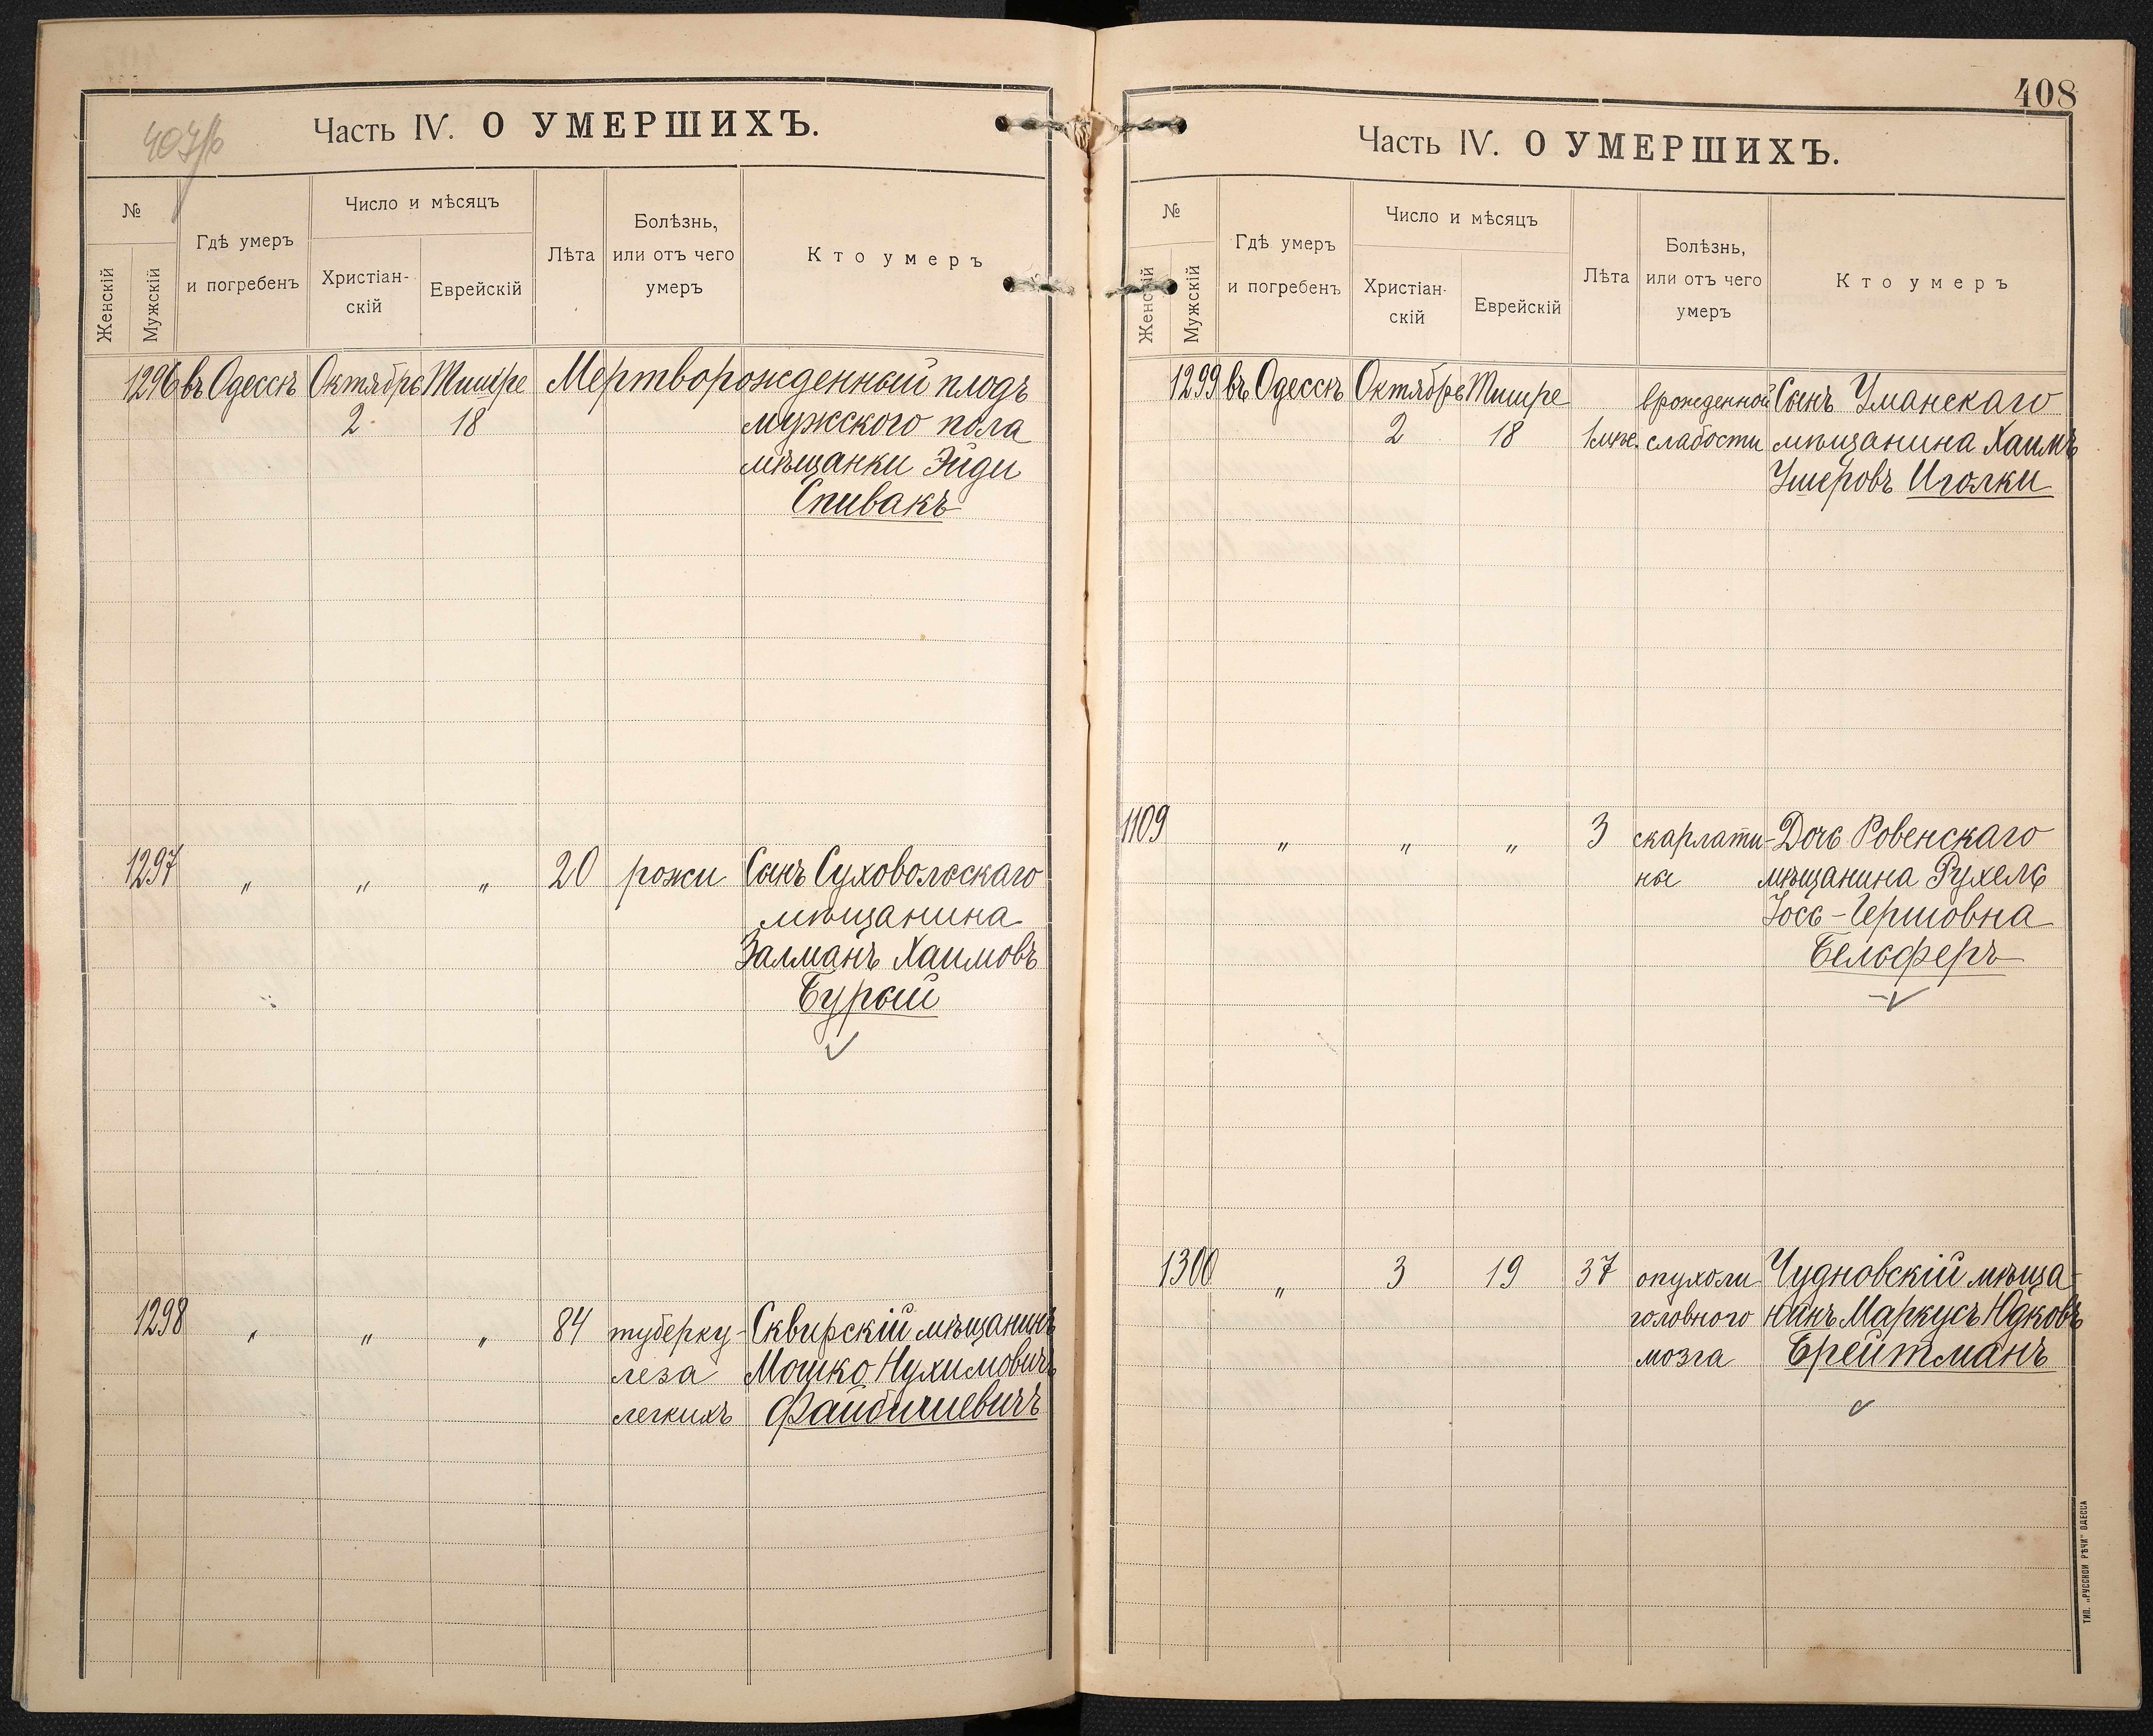 Часть IV. О УМЕРШИХЪ.
№
Женскій
Мужскій
Гдѣ умеръ
и погребенъ
Число и мѣсяцъ
Христіан-
скій
Еврейскій
Лѣта
Болѣзнь,
или отъ чего
умеръ
Кто умеръ
1296 въ Одессѣ Октябрь Тишре Мертворожденный плодъ
2 18 мужского пола
мѣщанки Эйди
Спивакъ
1297 " " " 20 рожи Сынъ Суховольскаго
мѣщанина
Залманъ Хаимовъ
Бурый
1298 " " " 84 туберку- Сквирскій мѣщанинъ
леза Мошко Нухимовичъ
легкихъ Файбишевичъ
408
Часть IV. О УМЕРШИХЪ.
№
Женскій
Мужскій
Гдѣ умеръ
и погребенъ
Число и мѣсяцъ
Христіан-
скій
Еврейскій
Лѣта
Болѣзнь,
или отъ чего
умеръ
Кто умеръ
1299 въ Одессѣ Октябрь Тишре врожденной Сынъ Уманскаго
2 18 1 мѣс. слабости мѣщанина Хаимъ
Ушеровъ Иголки
1109 " " " 3 скарлати- Дочь Ровенскаго
ны мѣщанина Рухель
Іось-Гершовна
Бельферъ
1300 " 3 19 37 опухоли Чудновскій мѣща-
головного нинъ Маркусъ Юдковъ
мозга Брейтманъ
ТИП. „РУССКОЙ РѢЧИ" ОДЕССА